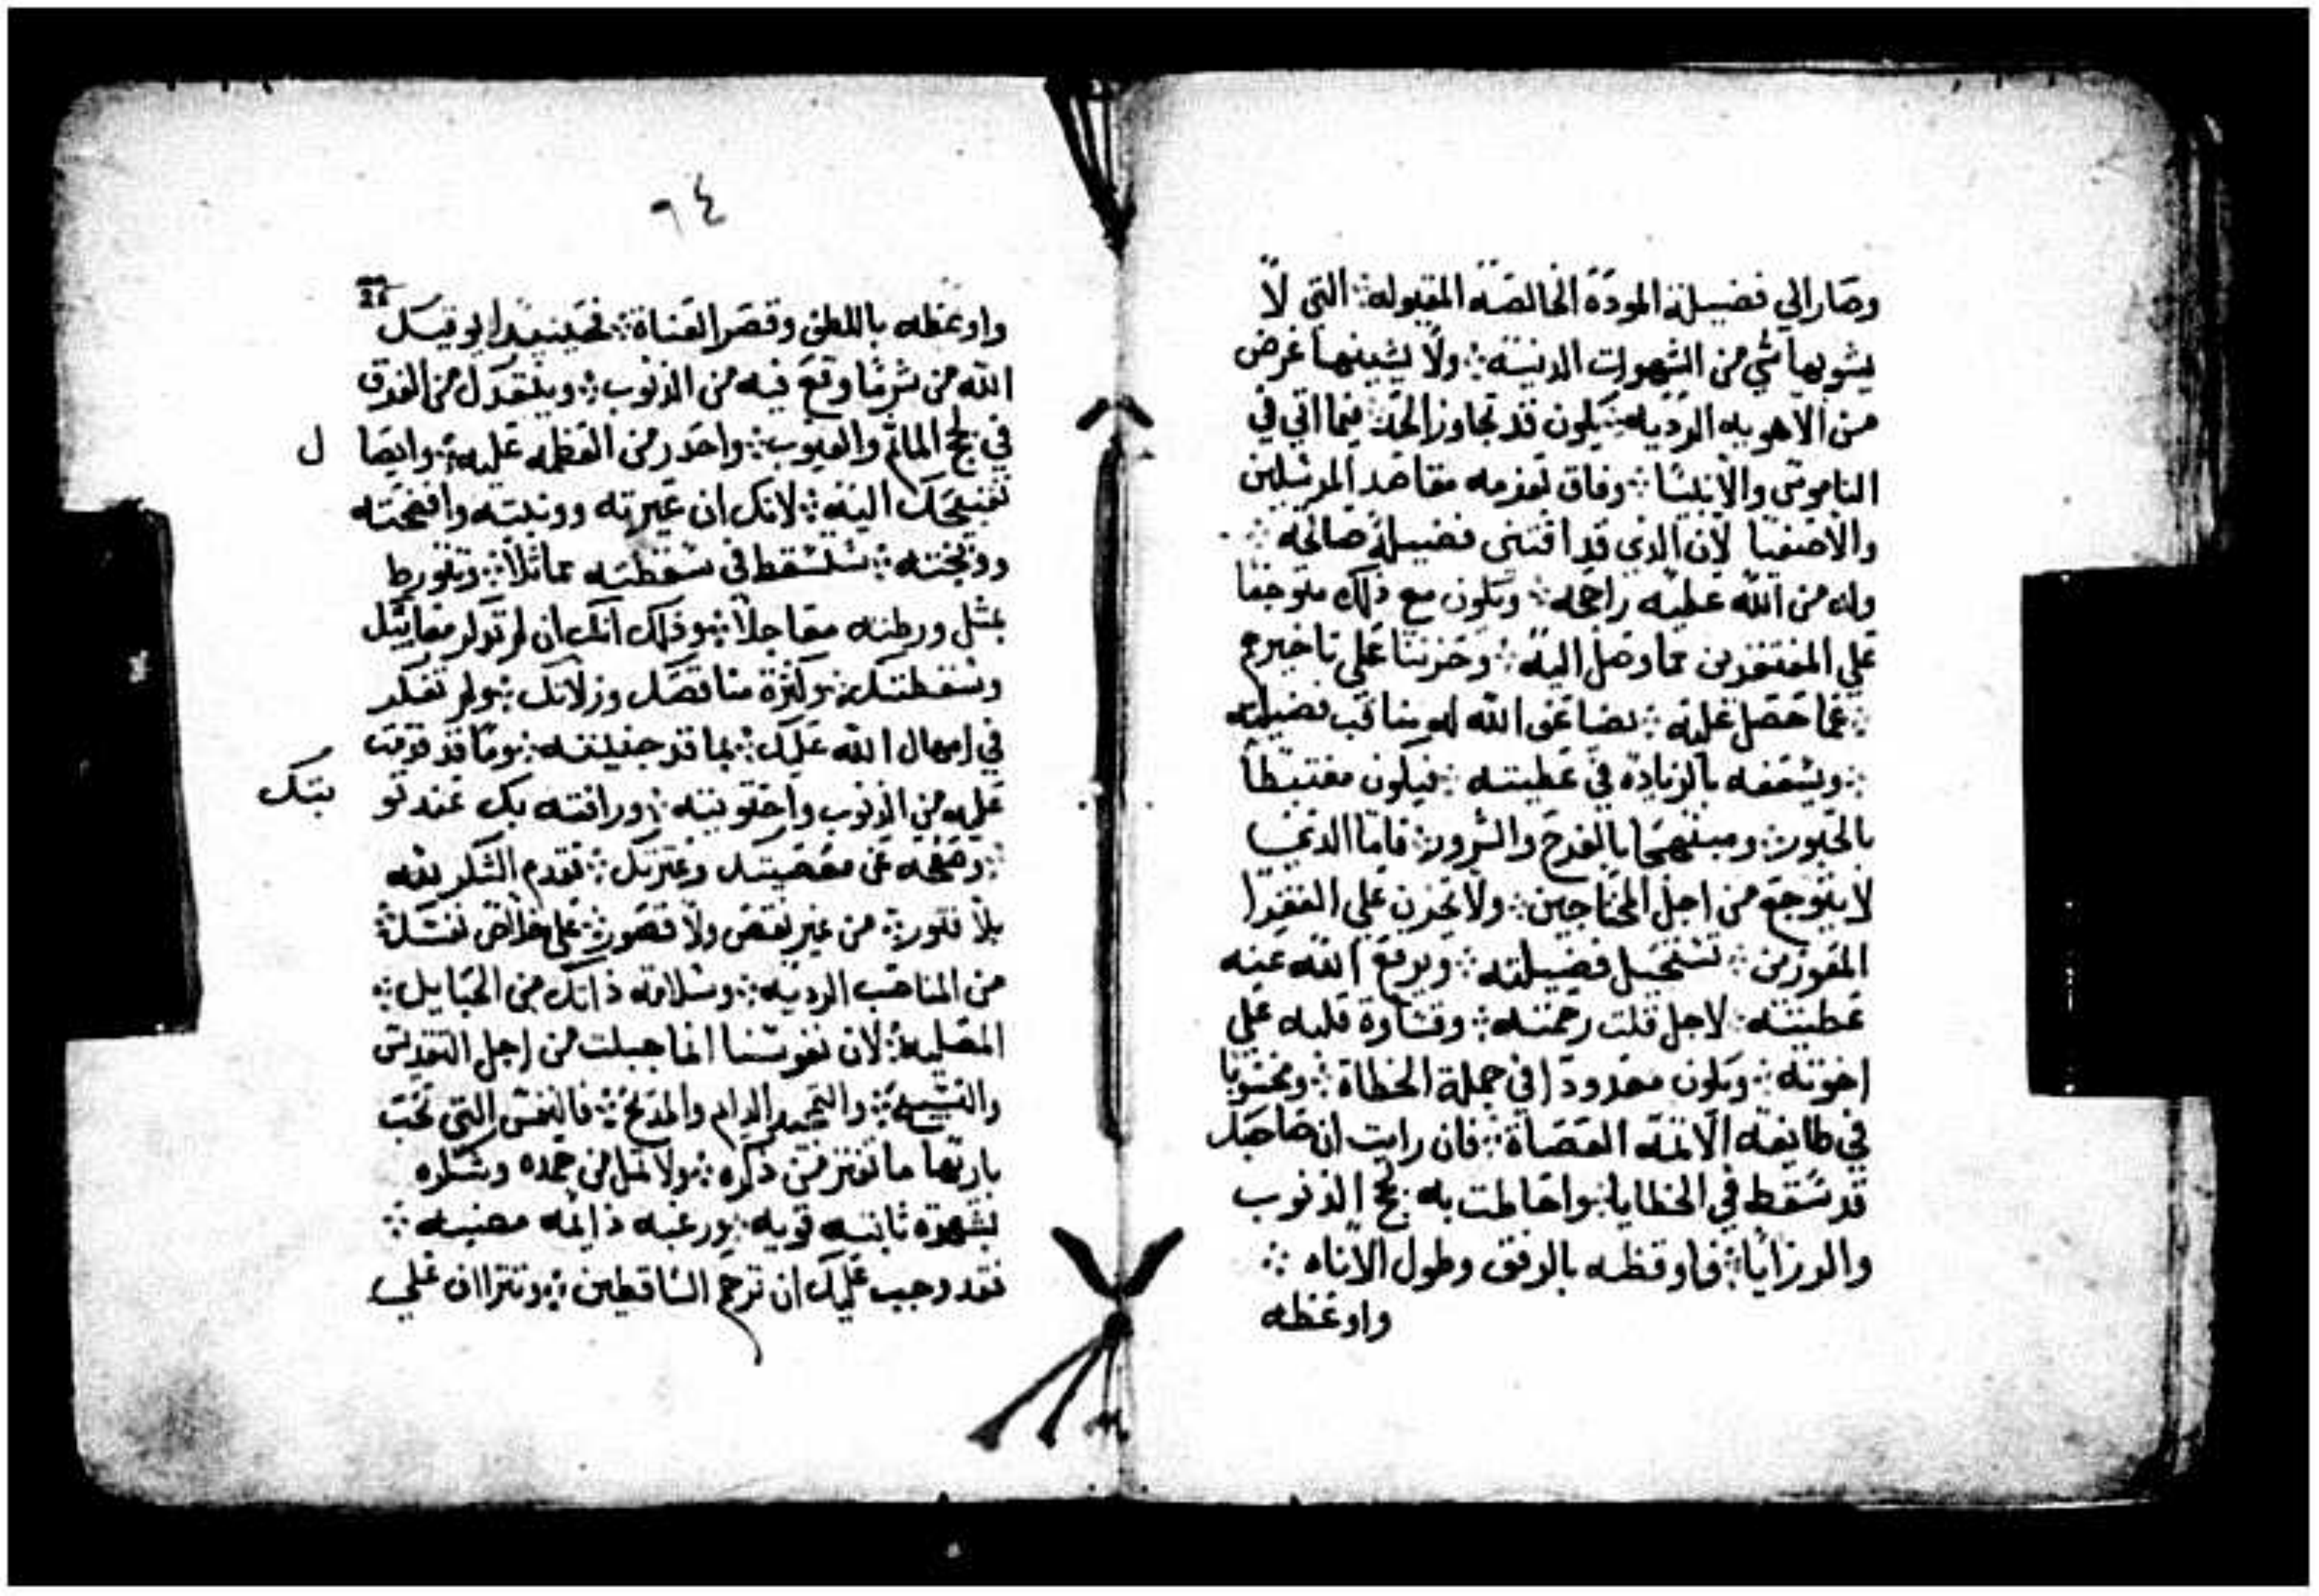 وصار الي فضيلة المودة الخالصه المقبوله ჻ التي لا
يشوبها شي من الشهوات الدنيسه ჻ ولا يشينها غرض
من الاهويه الرديه ჻ يكون قد تجاوز الحد ჻ فيما اتي في
الناموس والانبيا ჻ وفاق بعزمه مقاصد المرسلين
والاصفيا لان الذي قد اقتني فضيلة صالحه ჻
وله من الله عطيه راجحه ჻ ويكون مع ذلك متوجعا
علي المفتقرين مما وصل اليه ჻ وحزينا علي تاخيرهم
჻ عما حصل عليه ჻ يضاعف الله له مناقب فضيلته
჻ ويسعفه بالزياده في عطيته ჻ فيكون مغتبطا
بالحبور ჻ ومبتهجا بالفرح والسرور ჻ فاما الذي
لا يتوجع من اجل المحتاجين ჻ ولا يحزن علي الفقرا
المعوزين ჻ تستحيل فضيلته ჻ ويرفع الله عنه
عطيته ჻ لاجل قلت رحمته ჻ وقساوة قلبه علي
اخوته ჻ ويكون معدودا في جملة الخطاة ჻ ومحسوبا
في طايفة الاثمه العصاة ჻ فان رايت ان صاحبك
قد سقط في الخطايا ჻ واحاطت به لجج الذنوب
والرزايا ჻ فاوقظه بالرفق وطول الاناه ჻
واوعظه
٦٤
26
واوعظه باللطف وقصر العناة ჻ فحينيذ
الله من شر ما وقع فيه من الذنوب ჻ من الغرق
في لجج الماثم والعيوب ჻ واحدر من العظمه عليه ჻ وايصا ل
تقبيحك اليه ჻ لانك ان عيرته وونبته وافضحته
ووبخته ჻ ستسقط في سقطته مماثلا ჻ وتتورط
بمثل ورطته معاجلا ჻ وذلك انك ان لم تذكر معايبك
وسقطتك ჻ وكثرة مناقصك وزلاتك ჻ ولم تفكر
في امهال الله عليك ჻ بما قد جنيته ჻ وما قد
عليه من الذنوب واحتويته ჻ ورافته بك عند تو بتك
჻ وصفحه عن معصيتك وعثرتك ჻ تقدم الشكر لله
بلا فتور ჻ من غير نقص ولا قصور ჻ علي خلاص نفسك ჻
من المناصب الرديه ჻ وسلامة ذاتك من الحبايل ჻
المصليه ჻ لان نفوسنا انما جبلت من اجل التقديس
والتسبيح ჻ والتمجيد الدايم والمديح ჻ فالنفس التي تحب
باريها ما تفتر من ذكره ჻ ولا تمل من حمده وشكره
بشهوة ثابته قويه ჻ ورغبه دايمه مضيه ჻
فقد وجب عليك ان ترحم الساقطين ჻ وتتراف علي